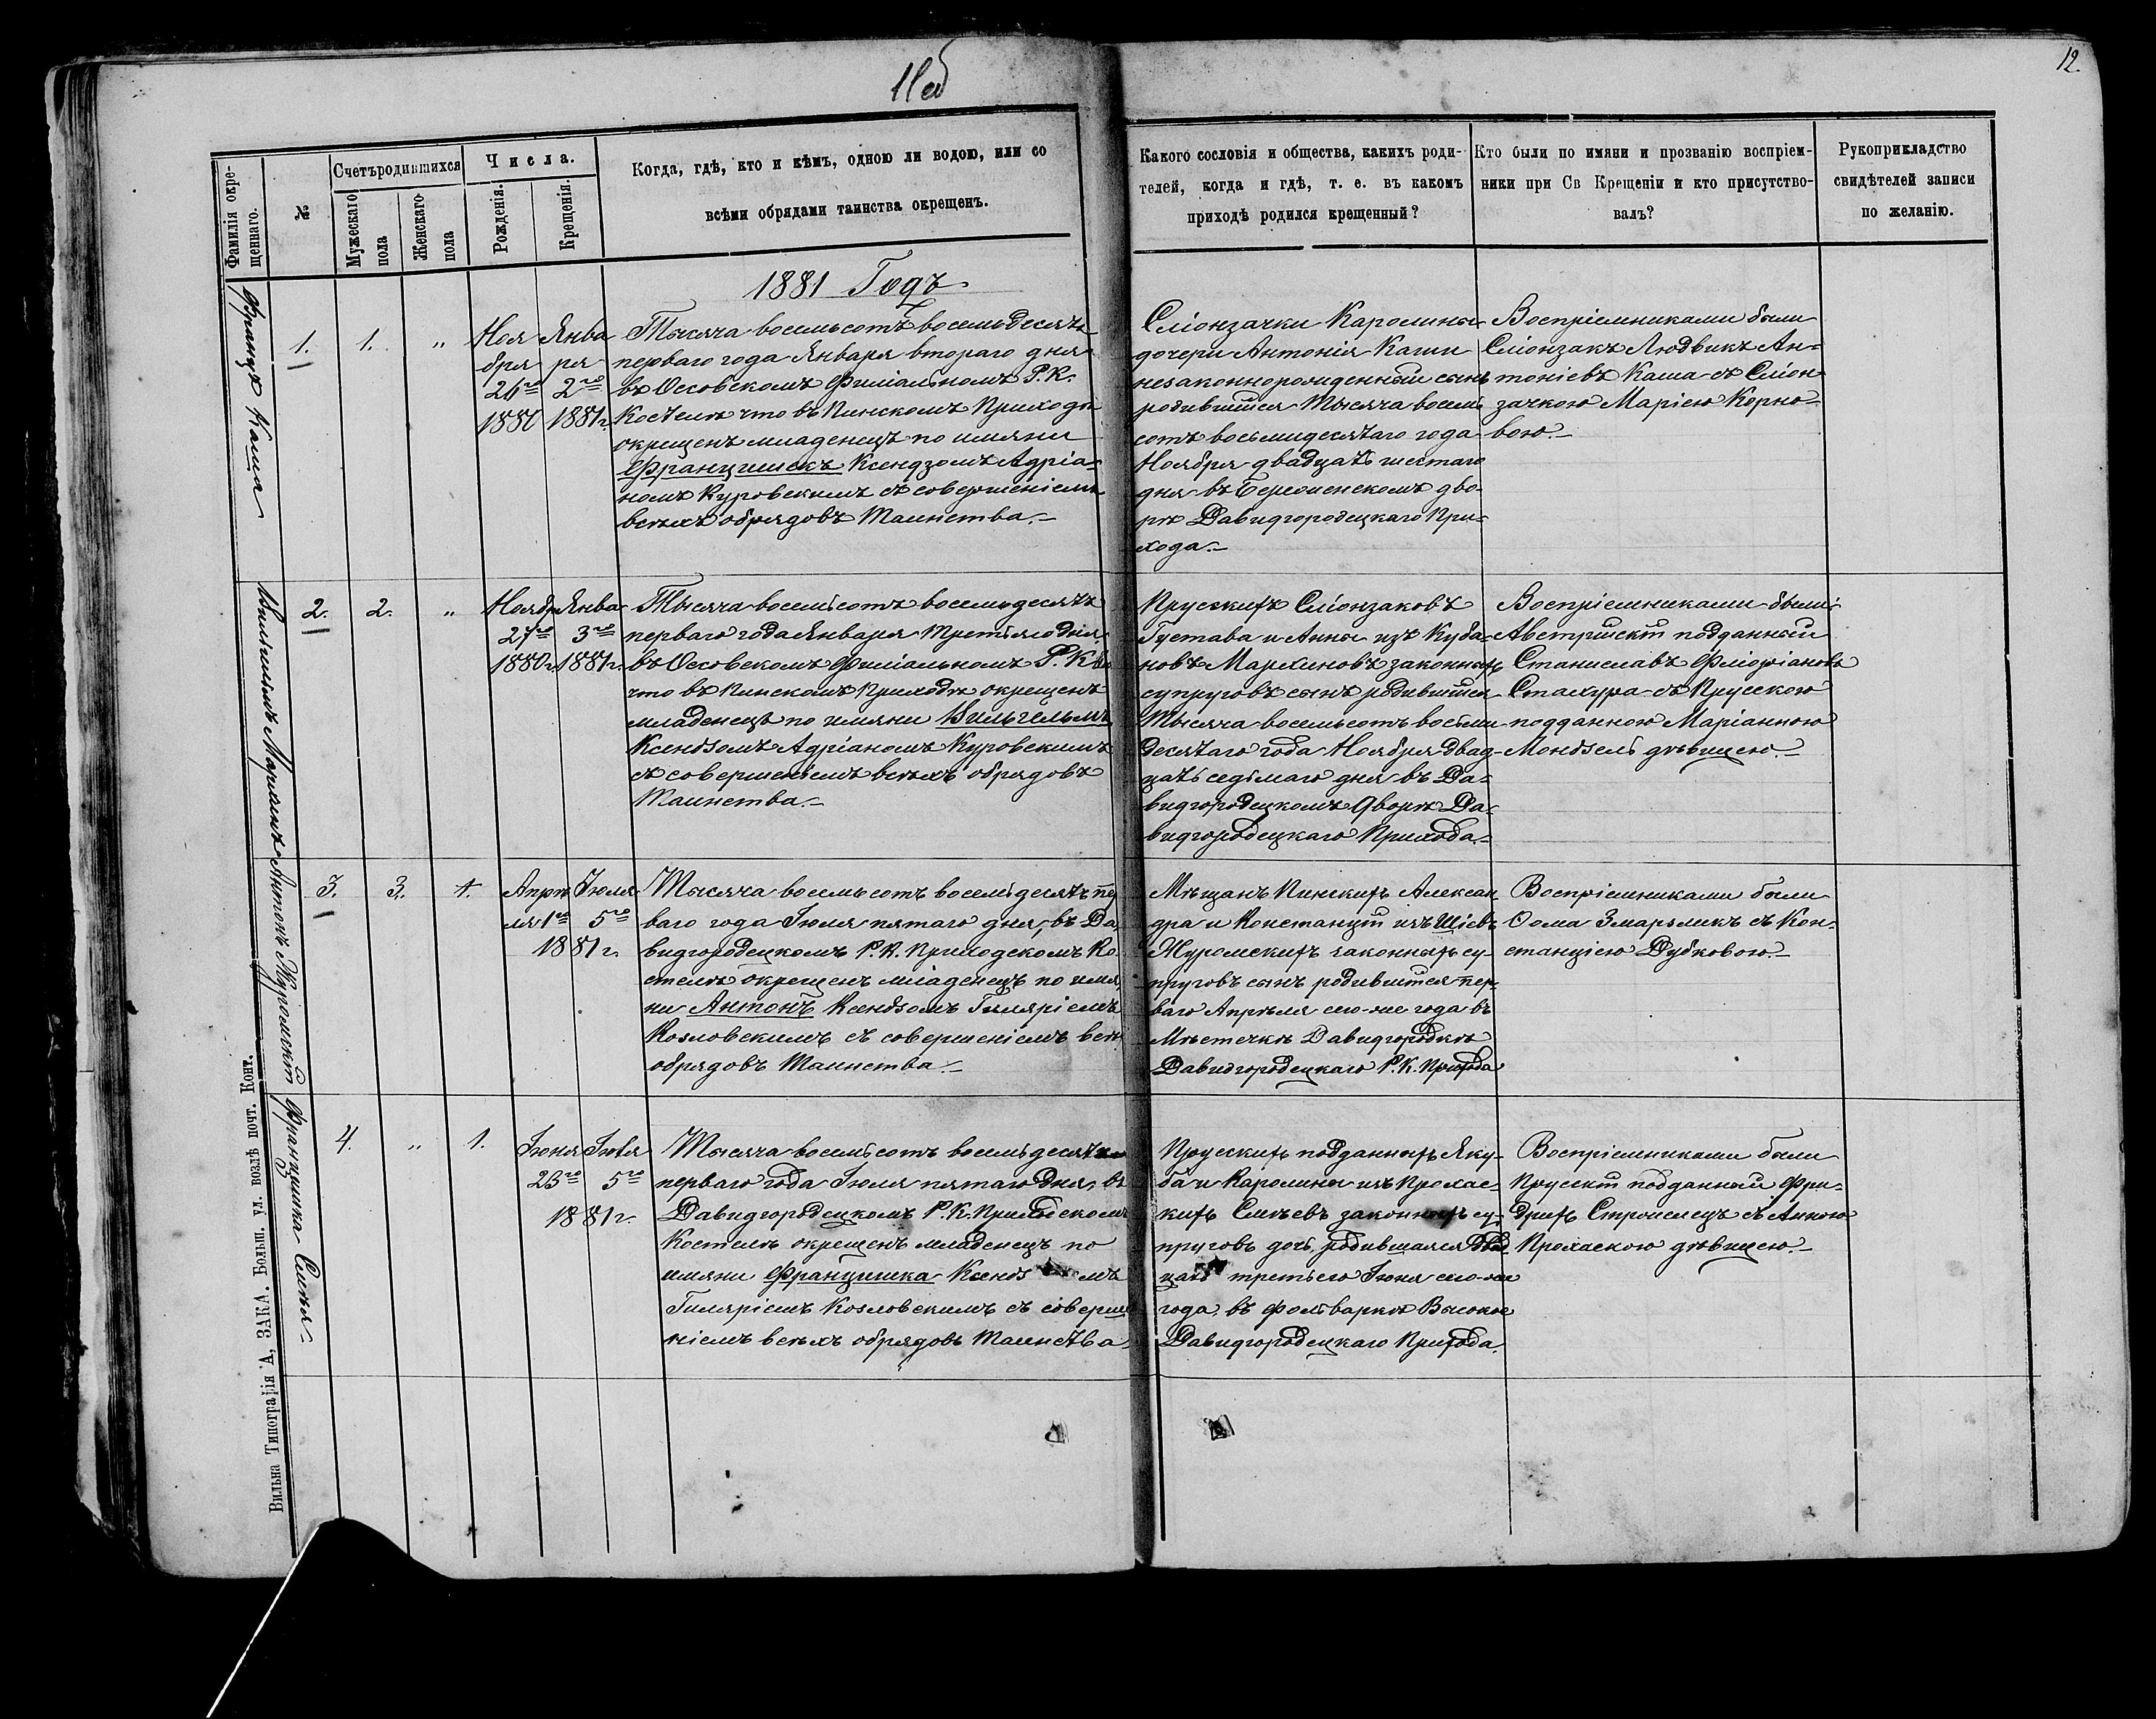 11об
12.
Фамилія окре-
щеннаго.
№
Счетъ родившихся
Мужескаго
пола
Женскаго
пола
Числа.
Рожденія.
Крещенія.
Когда, гдѣ, кто и кѣмъ, одною ли водою, или со
всѣми обрядами таинства окрещенъ.
Какого сословія и общества, какихъ роди-
телей, когда и гдѣ, т. е. въ какомъ
приходѣ родился крещенный?
Кто были по имяни и прозванію воспріем-
ники при Св Крещеніи и кто присутство-
валъ?
Рукоприкладство
свидѣтелей записи
по желанію.
1881 Годъ
Францъ Каша
1.
1.
"
Ноя
бря
26го
1880
Янва
ря
2го
1881г.
Тысяча восемьсотъ восемьдесятъ
перваго года Января втораго дня
въ Осовскомъ Филіальномъ Р. К.
Костелѣ что въ Пинскомъ Приходѣ
окрещенъ младенецъ по имяни
Францишекъ Ксендзомъ Адріа-
номъ Куровскимъ съ совершеніемъ
всѣхъ обрядовъ Таинства.
Сліонзачки Каролины
дочери Антонія Каши
незаконнорожденный сынъ
родившійся Тысяча восемь
сотъ восьмидесятаго года
Ноября двадцать шестаго
дня въ дво-
рѣ Давидгородецкаго При-
хода.
Воспріемниками были
Сліонзакъ Людвикъ Ан-
тоніевъ Каша съ Сліон-
зачкою Маріею Корно-
вою.
Вильгельмъ
2.
2.
"
Ноябр
27го
1880г.
Янва
3го
1881г.
Тысяча восемьсотъ восемьдесятъ
перваго года Января Третьяго дня
въ Осовскомъ Филіальномъ Р. К
что въ Пинскомъ Приходѣ окрещенъ
младенецъ по имяни Вильгельмъ
Ксендзомъ Адріаномъ Куровскимъ
съ совершеніемъ всѣхъ обрядовъ
Таинства.
Прусскихъ Сліонзаковъ
Густава и Анны изъ Куба-
новъ законныхъ
супруговъ сынъ родившійся
Тысяча восемьсотъ восьми
десятаго года Ноября двад-
цать седьмаго дня въ Да-
видгородецкомъ Дворѣ Да-
видгородецкаго Прихода.
Воспріемниками были
Австрійскій подданный
Станиславъ Флюріановъ
Стахура съ Прусскою
подданною Маріанною
Мондзель дѣвицею.
Антонъ Журомскій
3.
3.
Апрѣ
ля 1го
Іюля
5го
1881г.
Тысяча восемь сотъ восемьдесятъ пер
ваго года Іюля пятаго дня, въ Да-
видгородецкомъ Р. К. Приходскомъ Ко
стелѣ окрещенъ младенецъ по имя
ни Антонъ Ксендзомъ Гиляріемъ
Козловскимъ съ совершеніемъ всѣхъ
обрядовъ Таинства.
Мѣщанъ Пинскихъ Алексан
дра и Констанціи изъ
Журомскихъ законныхъ су-
пруговъ сынъ родившійся пер-
ваго Апрѣля сего-же года въ
Мѣстечкѣ Давидгородкѣ
Давидгородецкаго Р. К. Прихода
Воспріемниками были
Ѳома съ Кон-
станціею Дубковою.
Францишка Смѣя
4.
"
1.
Іюня
23го
Іюля
5го
1881г.
Тысяча восемь сотъ восемьдесятъ
перваго года Іюля пятаго дня, въ
Давидгородецкомъ Р. К. Приходскомъ
Костелѣ окрещенъ младенецъ по
имяни Францишка Ксендзомъ
Гиляріемъ Козловскимъ съ соверше
ніемъ всѣхъ обрядовъ Таинства.
Прусскихъ подданныхъ Яку-
ба и Каролины изъ Прохас-
кихъ Смѣевъ законныхъ су-
пруговъ дочь, родившаяся Двад
цать третьяго Іюня сего-же
года, въ фольваркѣ Высокое
Давидгородецкаго Прихода.
Воспріемниками были
Прусскій подданный Фри-
дрихъ съ Анною
Прохаскою дѣвицею.
Вильна Типографія А, ЗАКА. Больш. ул. возлѣ почт. Конт.